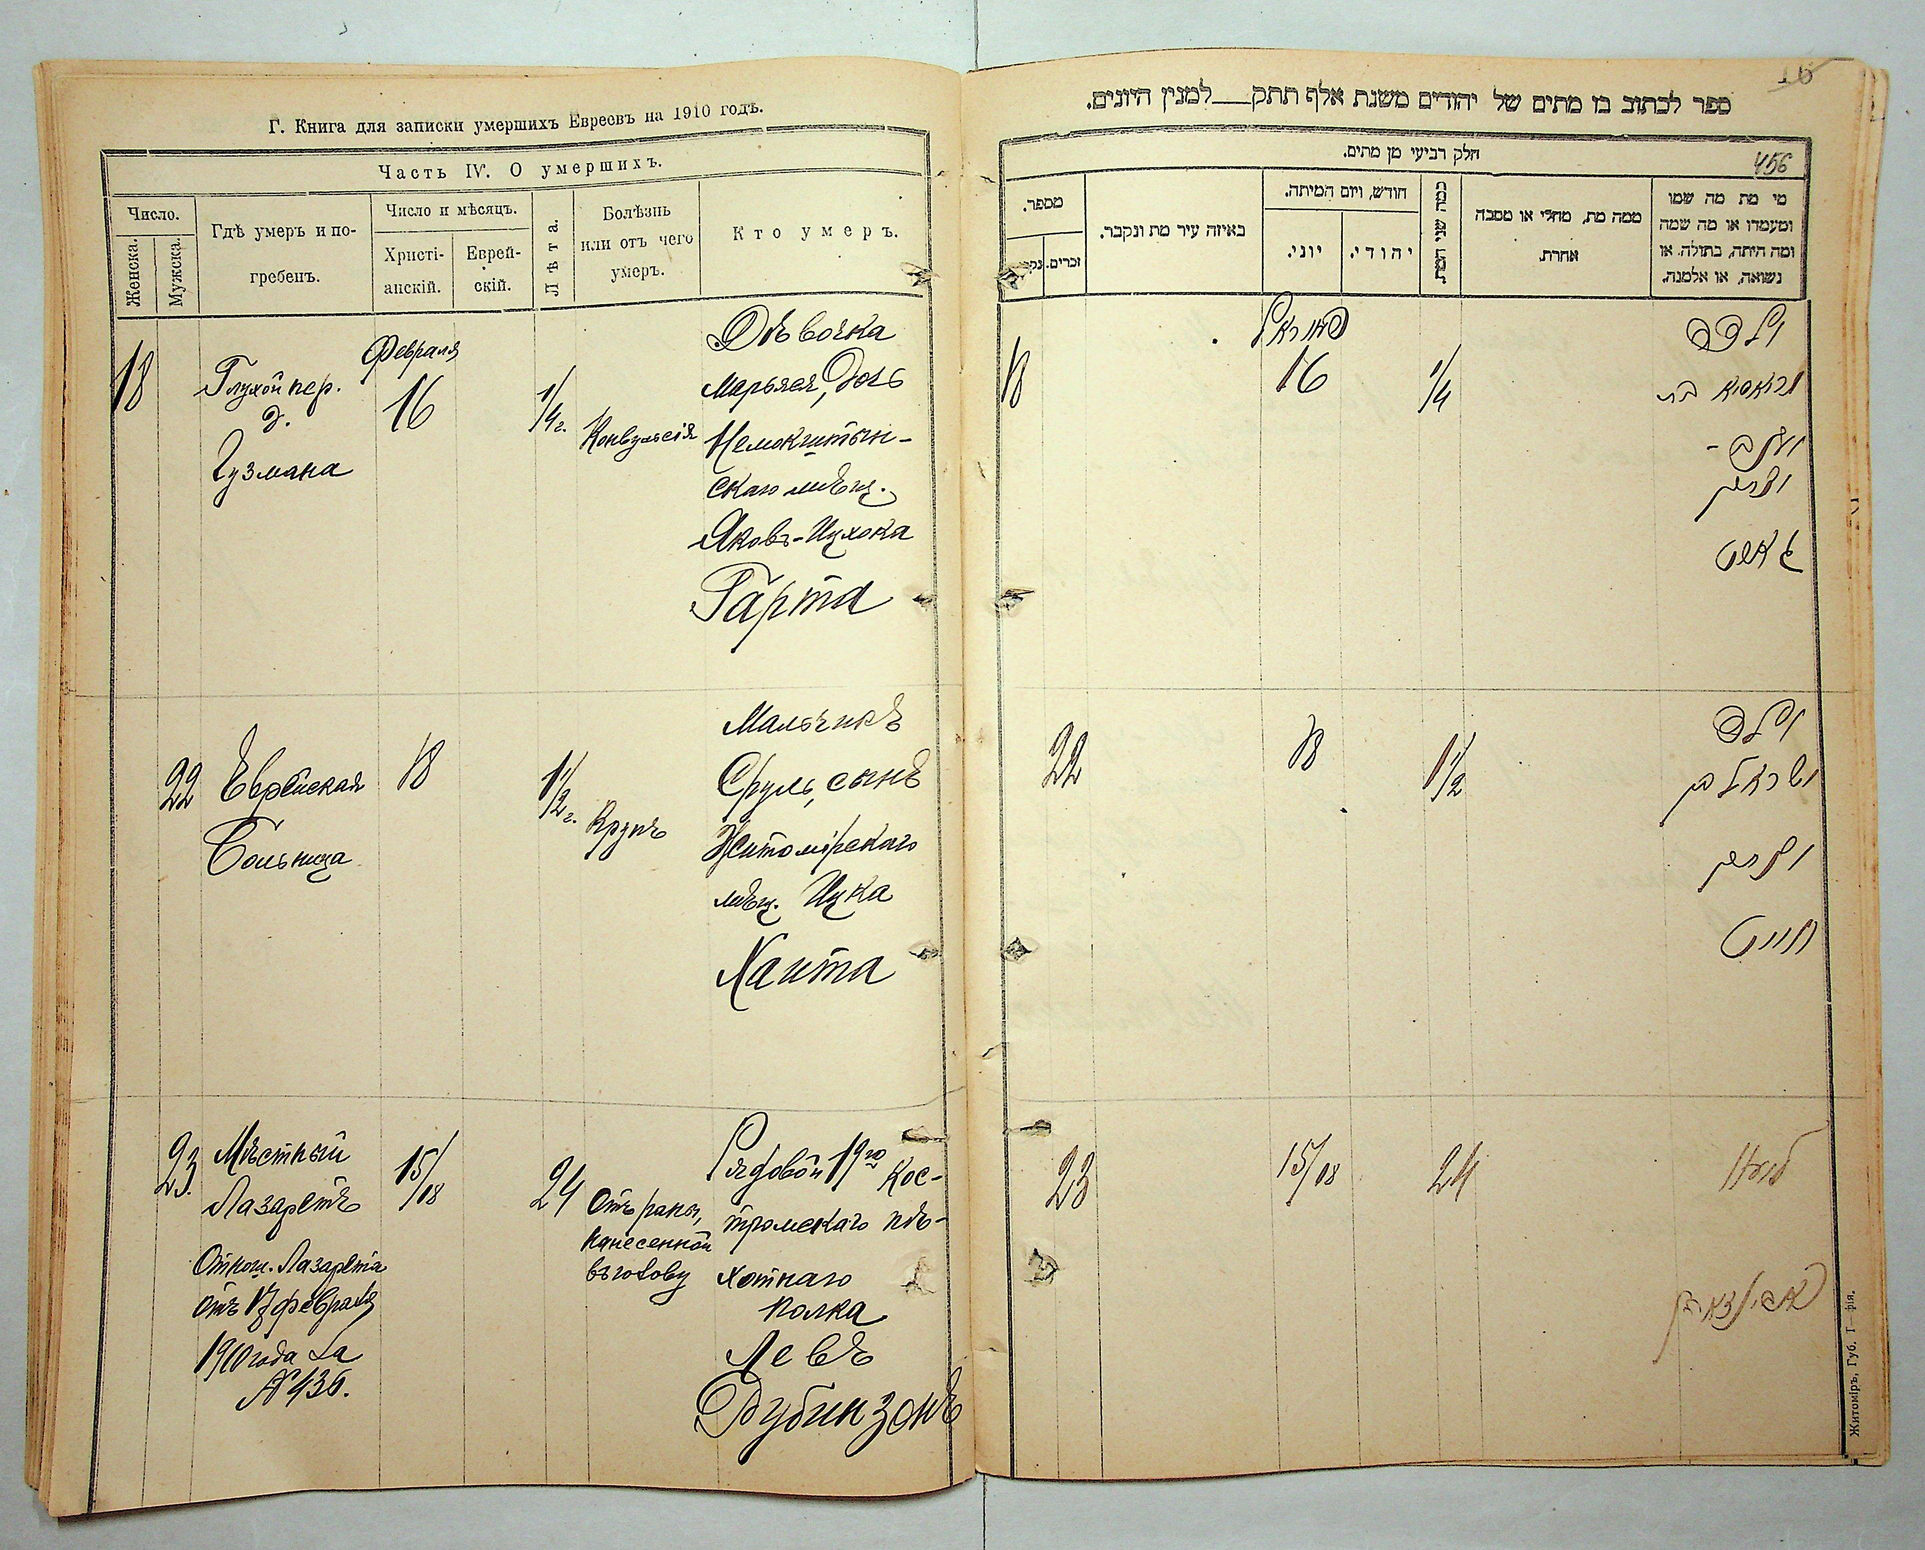 Г. Книга для записки умершихъ Евреевъ на 1910 годъ.
Часть IV. О умершихъ.
Число.
Женска.
Мужска.
Гдѣ умеръ и по-
гребенъ.
Число и мѣсяцъ.
Христі-
анскій.
Еврей-
скій.
Лѣта.
Болѣзнь
или отъ чего
умеръ.
Кто умеръ.
18
Глухой пер.
д.
Гузмана
Февраля
16
1/4 г.
Конвульсія
Дѣвочка
Марьяся, дочь
скаго мѣщ.
Яковъ-Ицхока
Гарта
22
Еврейская
Больница
18
1 1/2 г.
Крупъ
Мальчикъ
Сруль, сынъ
Житомірскаго
мѣщ. Ицка
Хаита
23
Мѣстный
Лазаретъ
Отнош. Лазарета
отъ 17 февраля
1910 года за
№ 436.
15/18
24
Отъ раны,
нанесенной
въ голову
Рядовой 19го Кос-
тромскаго пѣ-
хотнаго
полка
Левъ
Рубинзонъ
16
ספר לכתוב בו מתים של יהודים משנת אלף תתק___למנין היונים.
חלק רביעי מן מתים.
456
מי מת מה שמו
ומעמדו או מה שמה
ומה היתה, בתולה, או
נשואה, או אלמנה.
ממה מת, מחלי או מסבה
אחרת.
כמה שני המת
חודש, ויום המיתה.
יהודי.
יוני.
באיזה עיר מת ונקבר.
מספר.
זכרים.
18
פעוראל
16
1/4
ילדה
יעקב -
יצחק
גארט
22
18
1 1/2
ילד
ישראל בן
יצחק
חייט
23
15/18
24